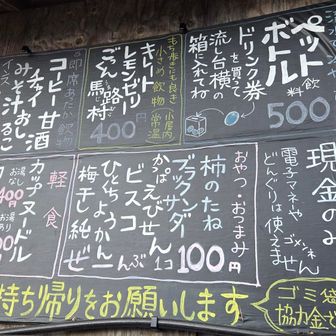 ペット
ボトル
飲料
500
ドリンク券
を買って
流し台横の
箱に入れてね
もち歩きにも良き
小さめ飲物
小屋内
常温
キレート
レモンゼリー
ごっくん馬路村
400円
即席あたか飲物
コーヒー 甘酒
チャイ
みそ汁
おしるこ
現金のみ
電子マネや
どんぐりは使えません
ゴメンネ
おやつ・おつまみ
柿のたね
ブラックサンダー
かっぱえびせん
ビスコ
ひとくちようかん
梅干し純
100円
軽食
カップヌードル
お湯なし
400円
お湯あり
持ち帰りをお願いします
ゴミ袋
協力金